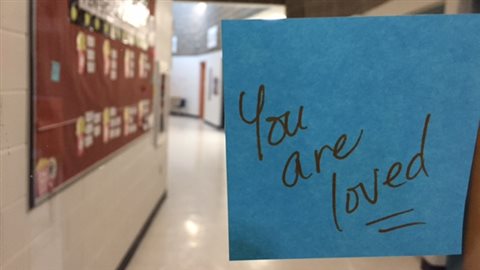 You
are
loved